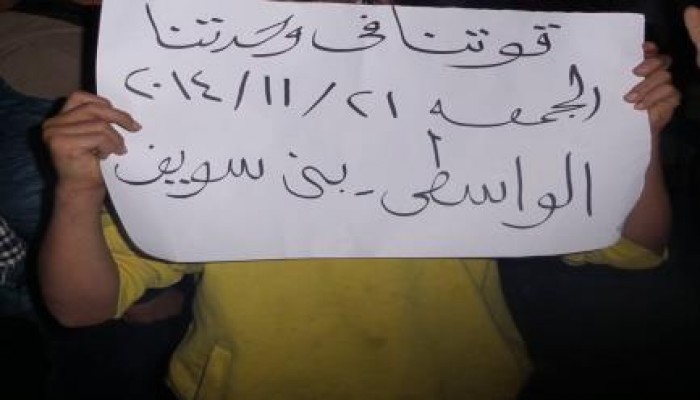 قوتنا فى وحدتنا
الجمعه ٢١/١١/٢٠١٤
الواسطى - بنى سويف